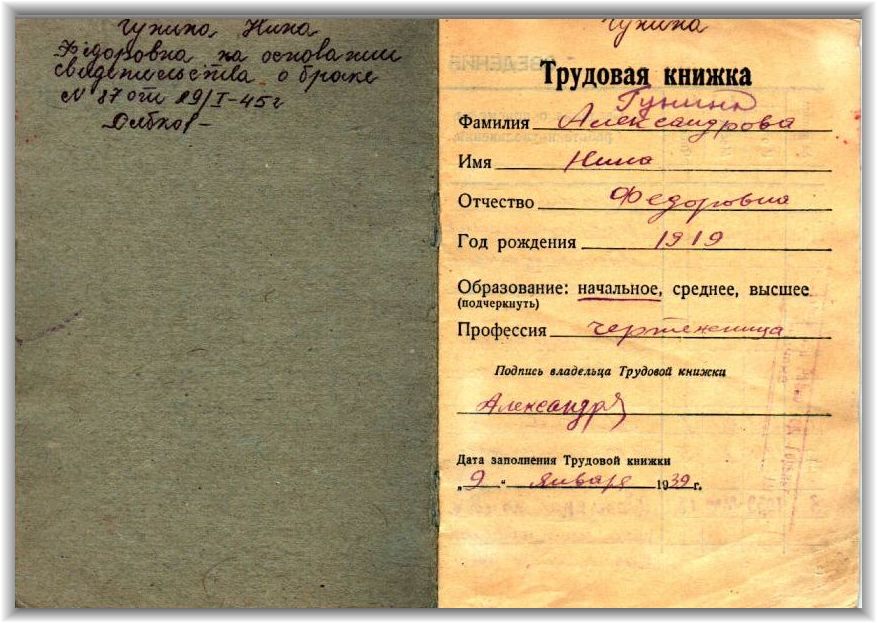 Гунина Нина
Федоровна на основании
свидетельства о браке
№ 87 от 29/I-45г
Гунина
Трудовая книжка
Гунина
Фамилия Александрова
Имя Нина
Отчество Федоровна
Год рождения 1919
Образование: начальное, среднее, высшее
(подчеркнуть)
Профессия чертежница
Подпись владельца Трудовой книжки
Александр
Дата заполнения Трудовой книжки
„9“ января 1939 г.